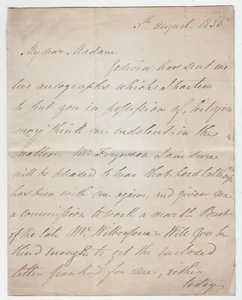 5th August 1833
My dear Madam
Godwin has sent me
two autographs which I hasten
to put you in possession of, lest you
may think me indolent in this
matter. Mr I am sure
will be pleased to hear that Lord
has been with me again, and given me
a commission to work a marble Bust
of the late Mr Wilberforce. Will you be
kind enough to get the enclosed
letter franked for me, either
today